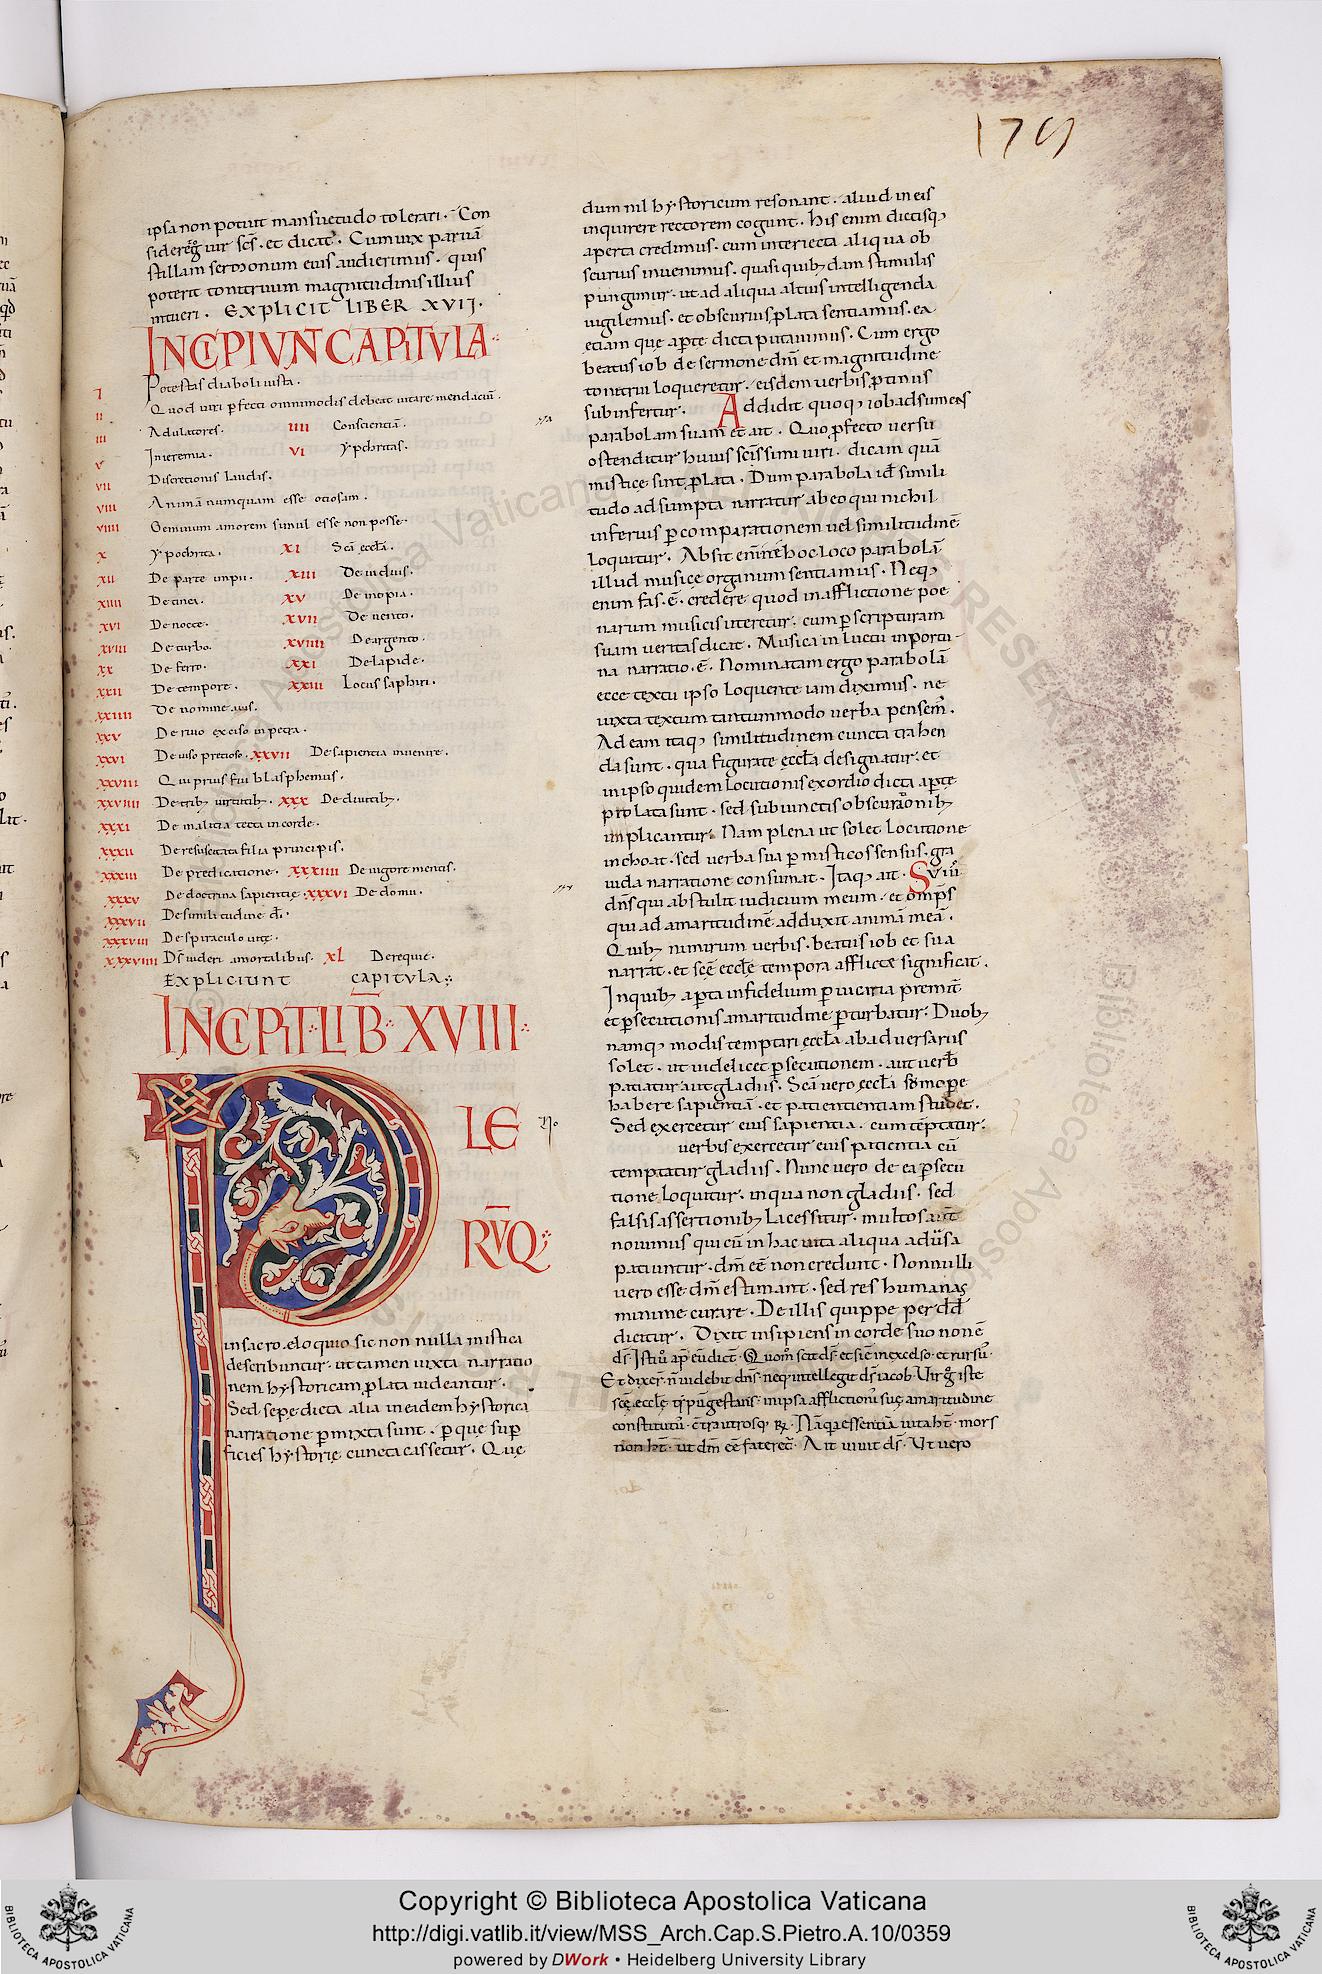 179
ipsa non potuit mansuetudo tolerari. Con
sideret g̊ uir sc̄s. et dicat. Cum uix paruā
stillam sermonum eius audierimus. quis
poterit tonitruum magnitudinis illius
intueri. EXPLICIT LIBER XVII.
INCIPIVNT CAPITVLA
I Potestas diaboli iusta.
II Quod uiri ꝑfecti omnimodis debeat uitare mendaciū.
III Adulatores. IIII Conscientiā.
V Inieremia. VI ypchritas.
VII Discretionis laudis.
VIII Animā numquam esse otiosam.
VIIII Geminum amorem simul esse non posse.
X ypochrita. XI Scā eccl̄a.
XII De parte impii. XIII De uiduis.
XIIII De tinea. XV De inopia.
XVI De nocte. XVII De uento.
XVIII De turbo. XVIIII De argento.
XX De ferro. XXI De lapide.
XXII De tempore. XXIII Locus saphiri.
XXIIII De nomine auis.
XXV De riuo exciso in petra.
XXVI De uiso precioso. XXVII De sapientia inuenire.
XXVIII Qui prius fui blasphemus.
XXVIIII De trib; uirtutib;. XXX De diuitib;.
XXXI De malitia tecta in corde.
XXXII De resuscitata filia principis.
XXXIII De predicatione. XXXIIII De uigore mentis.
XXXV De doctrina sapientię. XXXVI De domu.
XXXVII De similitudine d̄i.
XXXVIII De spiraculo uitę.
XXXVIIII Dm̄ uideri a mortalibus. XL De requie.
EXPLICIUNT CAPITVLA
INCIPIT LIB̄ XVIII
PLE
RV̄Q;
in sacro eloquio sic non nulla mistica
describuntur. ut tamen iuxta narratio
nem hystoricam ꝓlata uideantur.
Sed sepe dicta alia in eidem hystorica
narratione ꝑmixta sunt. ꝑ que suꝑ
ficies hystorię cuncta cassetur. Quę
dum nil hystoricum resonant. aliud in eis
inquirere rectorem cogunt. His enim dictisq;
aperta credimus. cum interiecta aliqua ob
scurius inuenimus. quasi quib;dam stimulis
pungimur. ut ad aliqua altius intelligenda
uigilemus. et obscurius ꝓlata sentiamus. ea
etiam quę aꝑte dicta putauimus. Cum ergo
beatus iob de sermone dn̄i et magnitudine
tonitrui loqueretur. eisdem uerbis ꝓtinus
subinfertur. Addidit quoq; iob adsumens
parabolam suam et ait. Quo ꝓfecto uersu
ostenditur huius scīssimi uiri. dicam quā
misticę sint ꝓlata. Dum parabola id̄ simili
tudo adsumpta narratur ab eo qui nichil
inferius ꝑ comparationem uel similitudinē
loquitur. Absit eni̅ in hoc loco parabolā
illud musice organum sentiamus. Neq;
enim fas. ē. credere quod in afflictione poe
narum musicis uteretur. cum ꝑ scripturam
suam ueritas dicat. Musica in luctu inportu
na narratio. ē. Nominatam ergo parabolā
ecce textu ipso loquente iam diximus. ne
iuxta textum tantummodo uerba pensem̄.
Ad eam itaq; similitudinem cuncta trahen
da sunt. qua figurate eccl̄a designatur. et
in ipso quidem locutionis exordio dicta aꝑte
prolata sunt. sed subiunctis obscuraōnib;
implicantur. Nam plena ut solet locutione
inchoat. sed uerba sua ꝑ misticos sensus. gra
uida narratione consumat. Itaq; ait. Viuit
dn̄s qui abstulit iudicium meum. et omp̄s
qui ad amaritudinē adduxit animā meā.
Quib; nimirum uerbis. beatus iob et sua
narrat. et scē eccl̄ę tempora afflictę significat.
In quib; aꝑta infidelium ꝑuicatia premit̄
et ꝑsecutionis amaritudine ꝑturbatur. Duob;
namq; modis temptari eccl̄a ab aduersariis
solet. ut uidelicet ꝑsecutionem. aut uerb̄
patiatur aut gladiis. Scā uero eccl̄a sūmopere
habere sapientiā. et patientientiam studet.
Sed exercetur eius sapientia. cum tēptatur.
uerbis exercetur eius patientia cū
temptatur gladiis. Nunc uero de ea ꝑsecu
tione loquitur. in qua non gladiis. sed
falsis assertionib; lacessitur. multos aut̄
nouimus qui cū in hac uita aliqua aduīsa
patiuntur. dm̄ eē non credunt. Nonnulli
uero esse dm̄ estimant. sed res humanas
minime curare. De illis quippe per dd̄
dicitur. Dixit insipiens in corde suo non ē
Et dixer̄. n̄ uidebit dn̄s. neq; intellegit ds̄ iacob. Vir g̊ iste
constitutū. c̄tra utrosq; R̄.
non ht̄. ut dm̄ eē fateret̄. Ait uiuit ds̄. Ut uero
Copyright © Biblioteca Apostolica Vaticana
http://digi.vatlib.it/view/MSS_Arch.Cap.S.Pietro.A.10/0359
powered by DWork • Heidelberg University Library